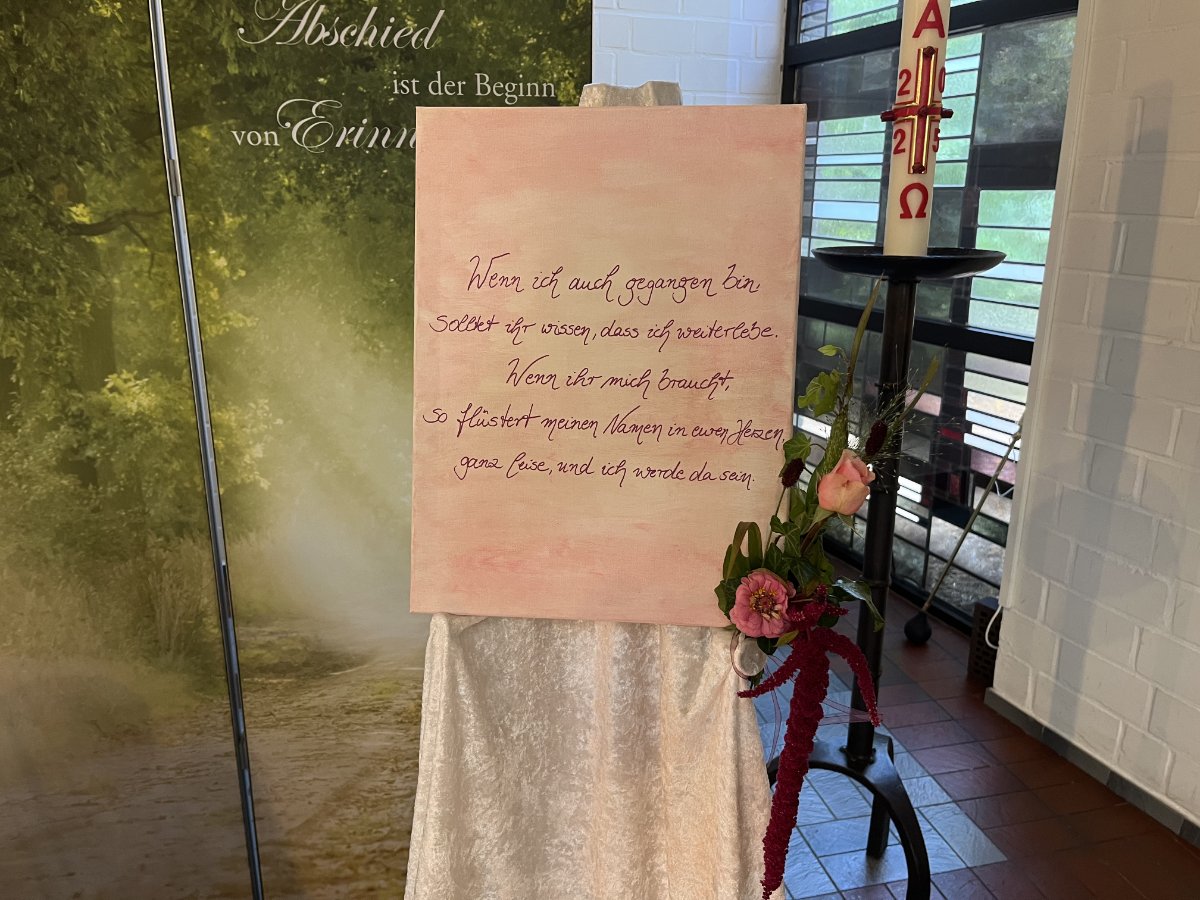 Abschied
ist der Beginn
von Erinn
Wenn ich auch gegangen bin,
solltet ihr wissen, dass ich weiterlebe.
Wenn ihr mich braucht,
so flüstert meinen Namen in euren Herzen,
ganz leise, und ich werde da sein.
A
20
25
Ω